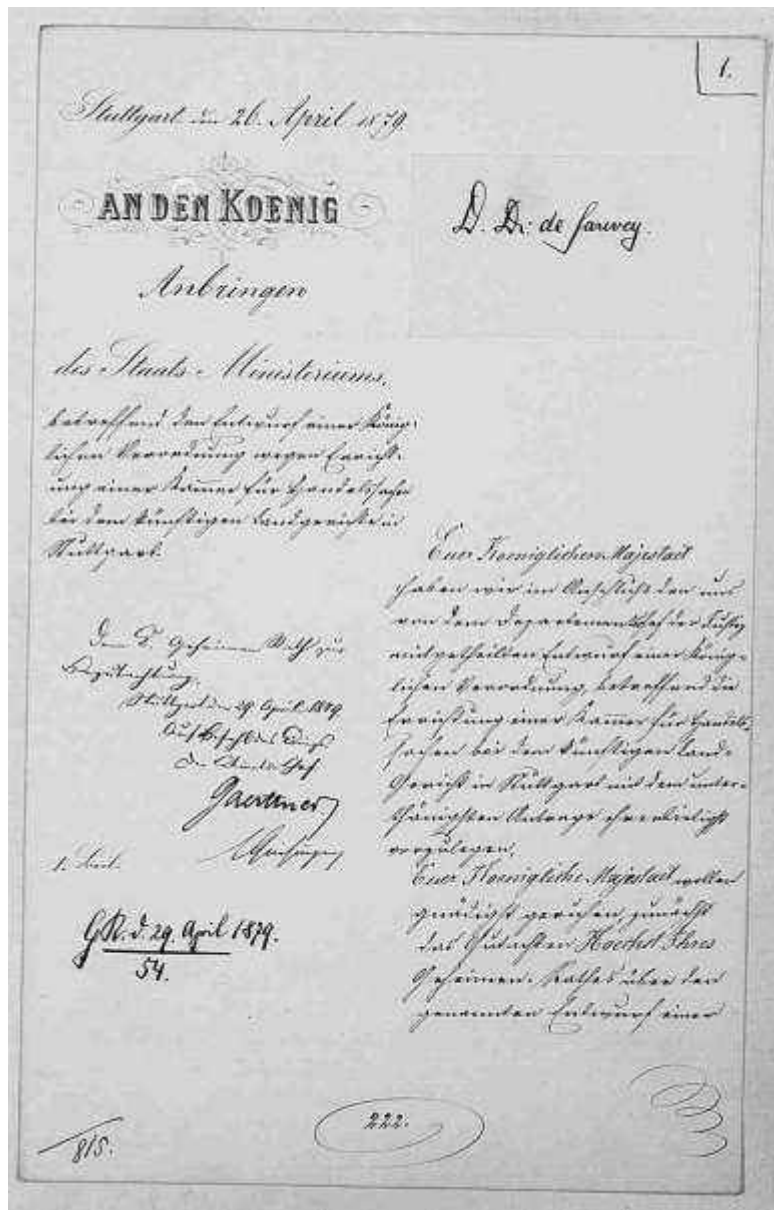 1.
Stuttgart den 26. April 1879.
AN DEN KOENIG
Anbringen
des Staats-Ministeriums,
betreffend den Entwurf einer König-
lichen Verordnung wegen Erricht-
ung einer Kammer für Handelssachen
bei dem künftigen Landgerichte in
Stuttgart.
D. Dr: de Sarwey.
Dem K. Geheimen Rath zur
Begutachtung.
Stuttgart den 29. April 1879
Auf Befehl des Königs
Der Chef
Gaerttner
1. Beil.
GR. d. 29. April 1879.
54.
Euer Koeniglichen Majestaet
haben wir im Anschluß den uns
von dem Departementschef der Justiz
mitgetheilten Entwurf einer König-
lichen Verordnung, betreffend die
Errichtung einer Kammer für Handels-
sachen bei dem künftigen Land-
Gericht in Stuttgart mit dem unter-
thänigsten Antrage ehrerbietigst
vorzulegen,
Euer Koenigliche Majestaet wollen
gnädigst geruhen, zunächst
das Gutachten Hoechst Ihres
Geheimen Rathes über den
genannten Entwurf einer
815.
222.